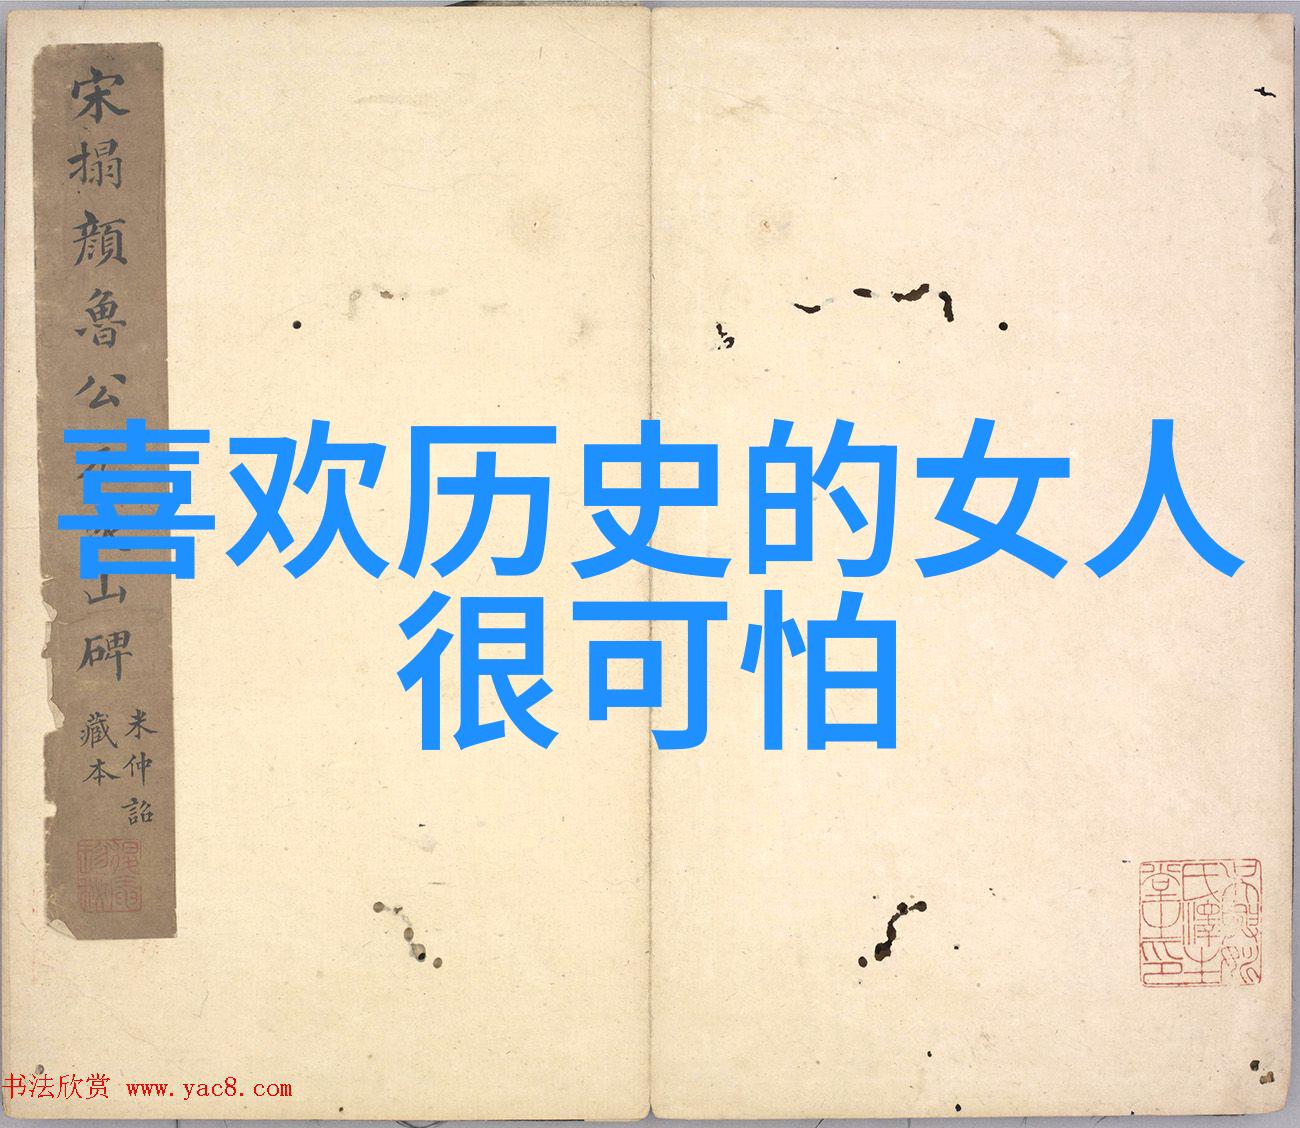 喜欢历史的女人
很可怕
宋搨顏魯公
山碑
米仲詔
藏本
书法欣赏 www.yac8.com